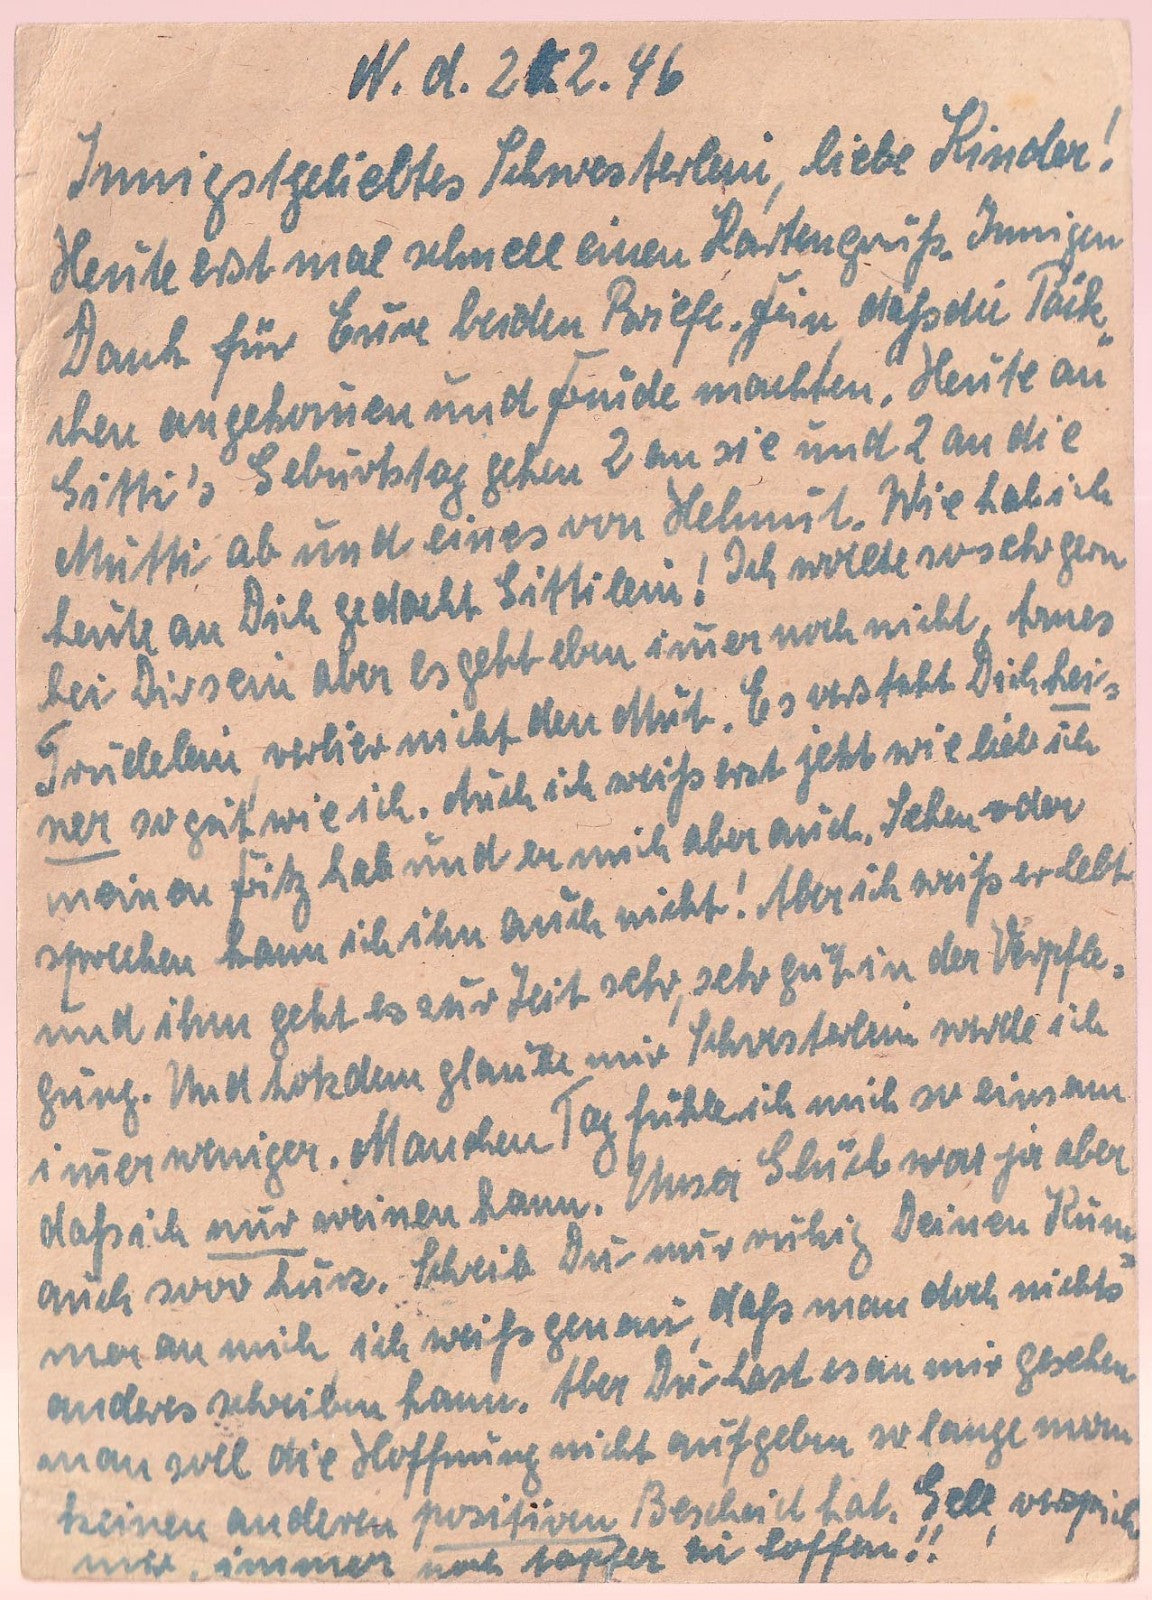 N. d. 2 2. 46
Innigstgeliebtes Schwesterlein, liebe Kinder!
Heute erst mal schnell einen Kartengruß. Innigen
Dank für Eure beiden Briefe. Fein, daß die Päck-
chen angekom̄en und Freude machten. Heute an
Gitti's Geburtstag gehen 2 an sie und 2 an die
Mutti ab und eines von Helmut. Wie hab ich
heute an Dich gedacht Gittilein! Ich wollte so sehr gern
bei Dir sein aber es geht eben im̄er noch nicht. Armes
Trudelein, verlier nicht den Mut. Es versteht Dich kei-
ner so gut wie ich. Auch ich weiß erst jetzt wie lieb ich
meinen Fritz hab und er mich aber auch. Sehen oder
sprechen kann ich ihn auch nicht! Aber ich weiß er lebt
und ihm geht es zur Zeit sehr, sehr gut in der Verpfle-
gung. Und trotzdem glaube mir Schwesterlein werde ich
im̄er weniger. Manchen Tag fühle ich mich so einsam
daß ich nur weinen kann. Unser Glück war ja aber
auch sooo kurz. Schreib Du nur ruhig Deinen Kum-
mer an mich, ich weiß genau, daß man doch nichts
anderes schreiben kann. Aber Du hast es an mir gesehen
man soll die Hoffnung nicht aufgeben so lange man
keinen anderen positiven Bescheid hat. Gell, versprich
mir, immer noch tapfer zu hoffen!!